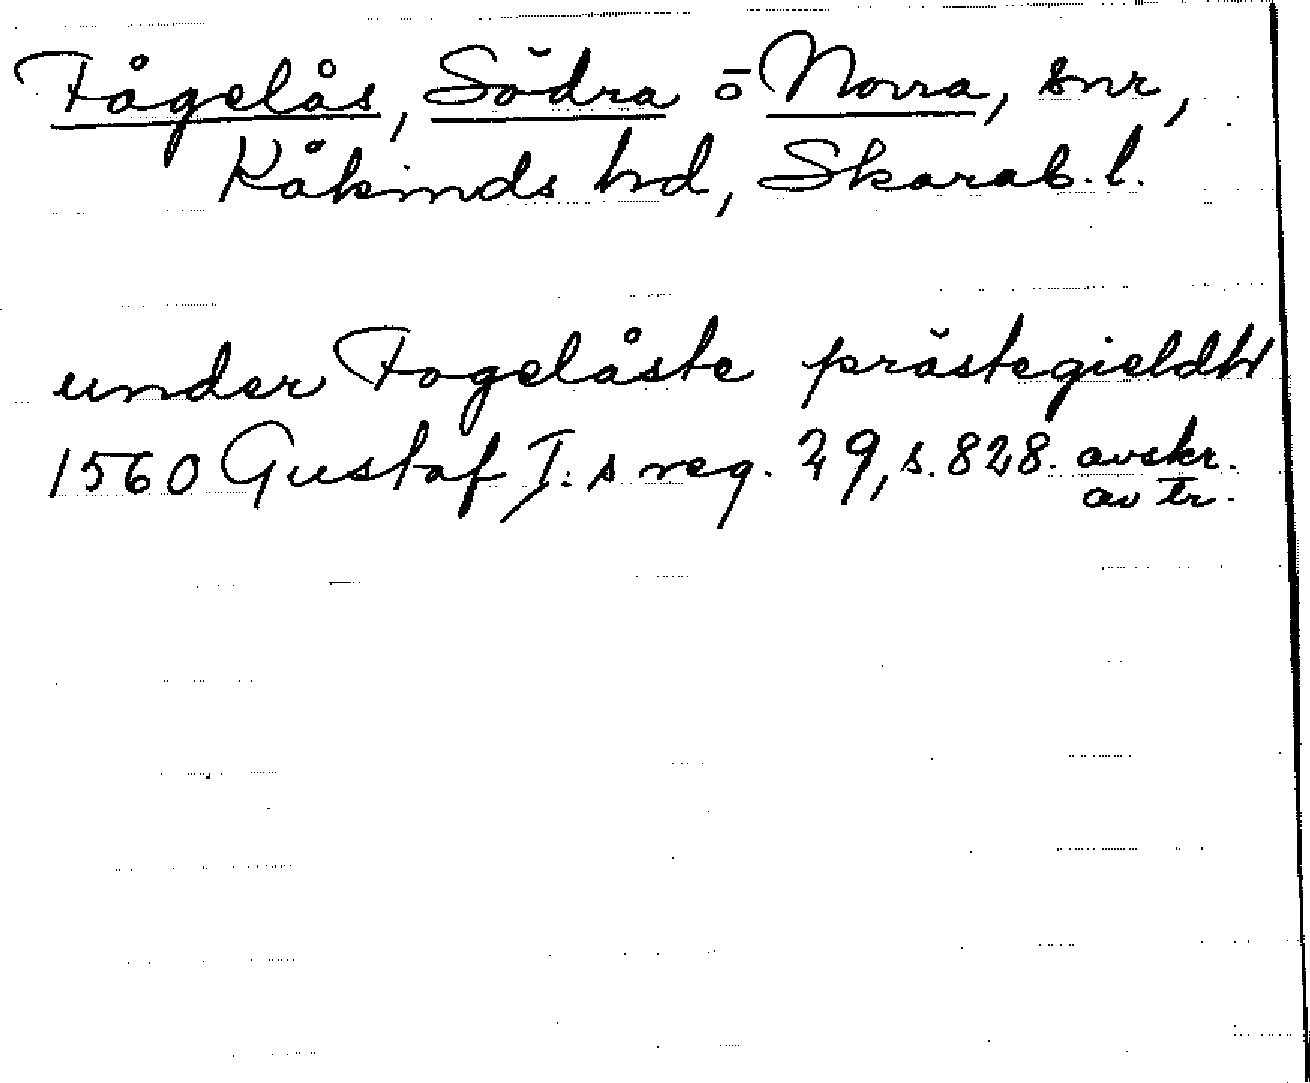 Fågelås, Södra ō Norra, snr,
Kåkinds hd, Skarab. l.
under Fogelåste prästegieldtt
1560 Gustaf I:s reg. 29, s. 828. avskr.
av tr.